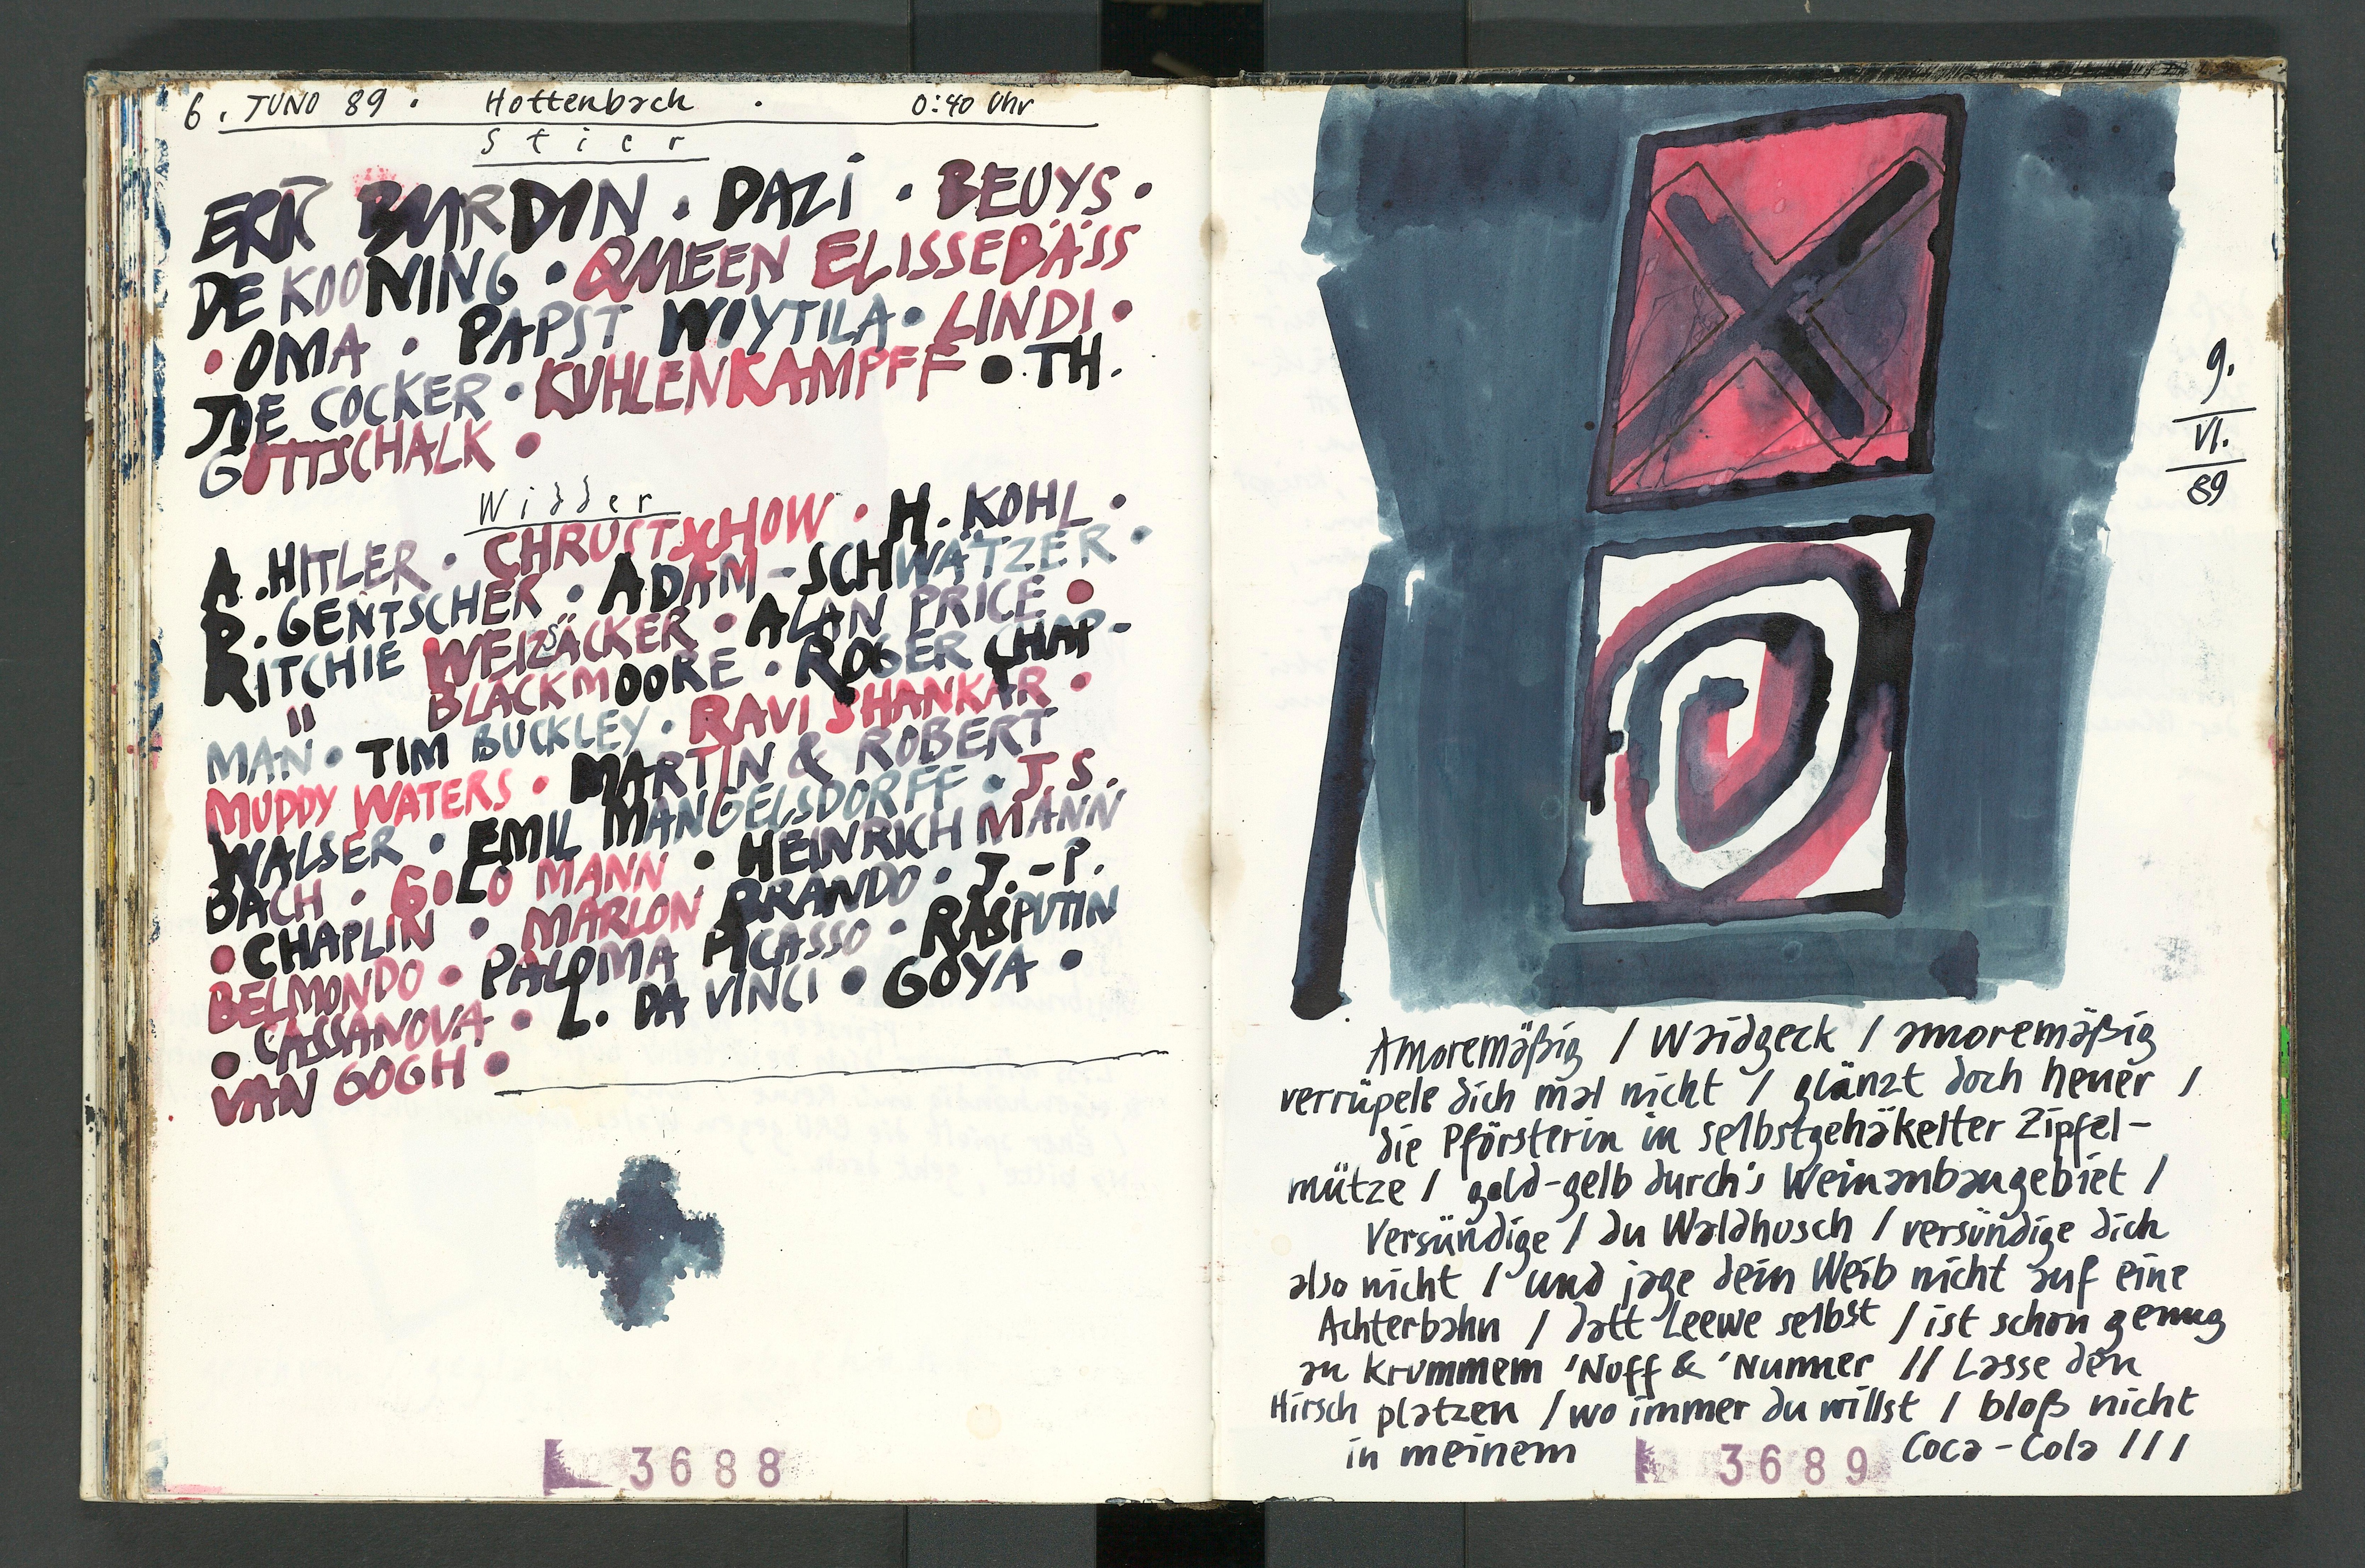 6. JUNO 89 . Hottenbach . 0:40 Uhr
Stier
ERIC BURDON · DAZI · BEUYS ·
DE KOONING · QUEEN ELISSEBÄSS
· OMA · PAPST WOYTILA · LINDI ·
JOE COCKER · KUHLENKAMPFF · TH.
GOTTSCHALK ·
Widder
A. HITLER · CHRUSTSCHOW · H. KOHL ·
D. GENTSCHER · ADAM-SCHWÄTZER ·
" WEIZSÄCKER · ALAN PRICE ·
RITCHIE BLACKMOORE · ROGER CHAP-
MAN · TIM BUCKLEY · RAVI SHANKAR ·
MUDDY WATERS · MARTIN & ROBERT
WALSER · EMIL MANGELSDORFF · J. S.
BACH · GOLO MANN · HEINRICH MANN
· CHAPLIN · MARLON BRANDO · J.-P.
BELMONDO · PALOMA PICASSO · RASPUTIN
· CASSANOVA · L. DA VINCI · GOYA ·
VAN GOGH ·
3688
9.
VI.
89
Amoremäßig / Waidgeck / amoremäßig
verrüpele dich mal nicht / glänzt doch heuer /
die Pförsterin in selbstgehäkelter Zipfel-
mütze / gold-gelb durch's Weinanbaugebiet /
Versündige / du Waldhusch / versündige dich
also nicht / und jage dein Weib nicht auf eine
Achterbahn / datt Leewe selbst / ist schon genug
an krummem 'Noff & 'Nunner // Lasse den
Hirsch platzen / wo immer du willst / bloß nicht
in meinem Coca-Cola ///
3689